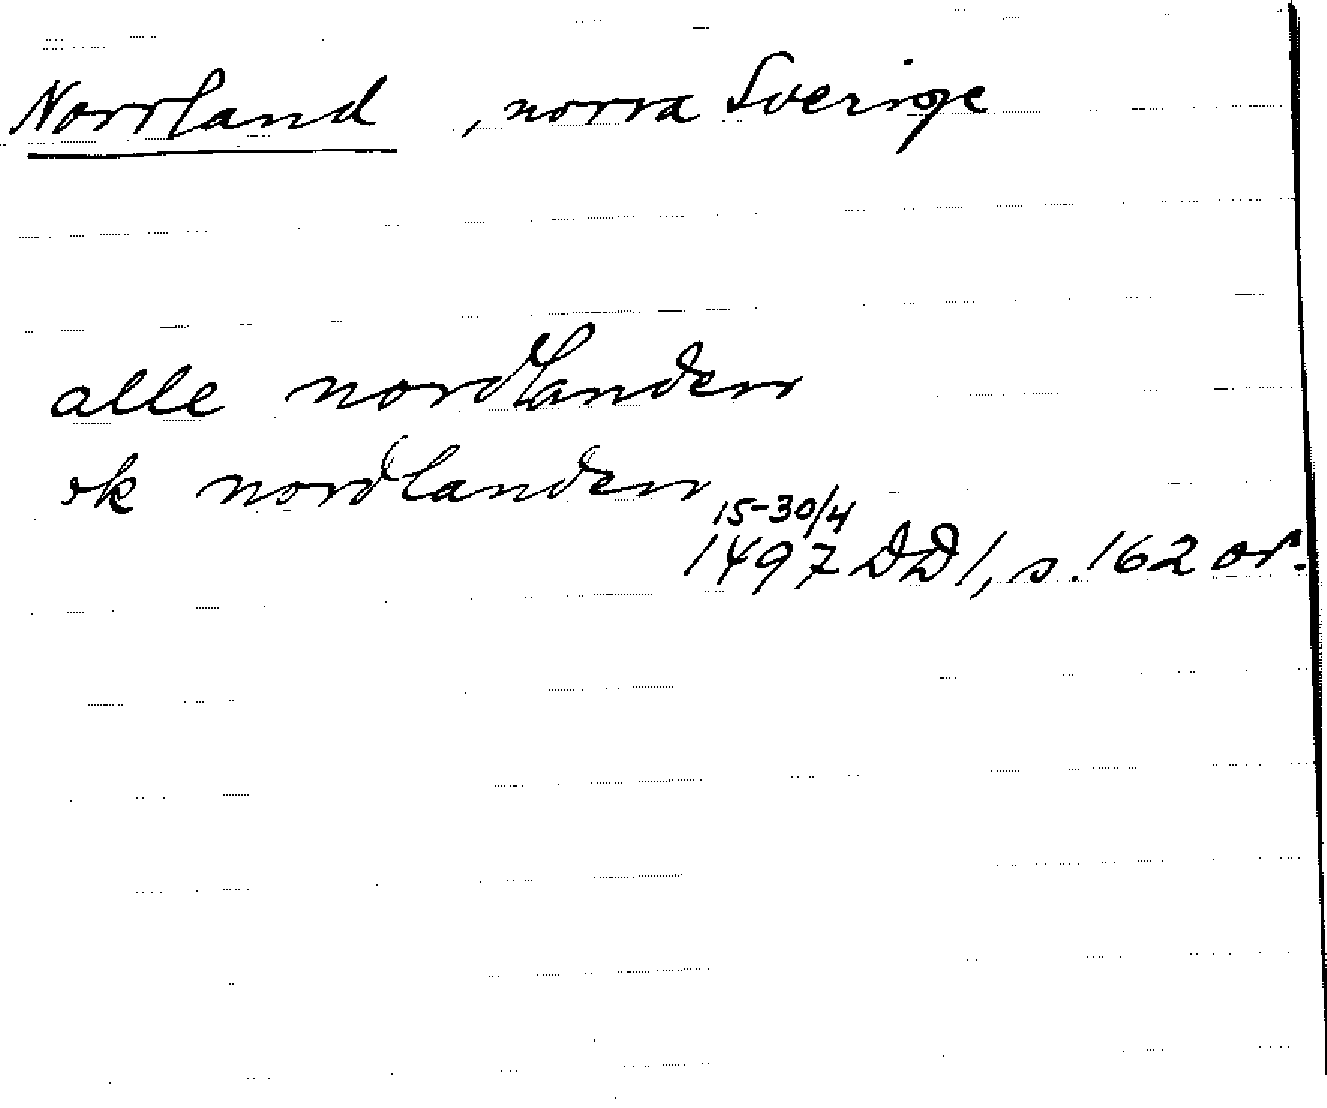 Norrland , norra Sverige
alle nordlanden
ok nordlanden
15-30/4
1497 DD 1, s. 162 or.